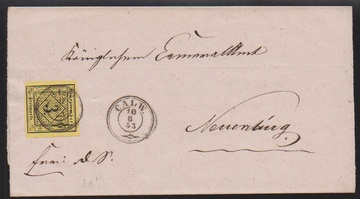 Königlichem Cameralamt
CALW
10
8
53
3
Neuenbürg.
frei: d. S.